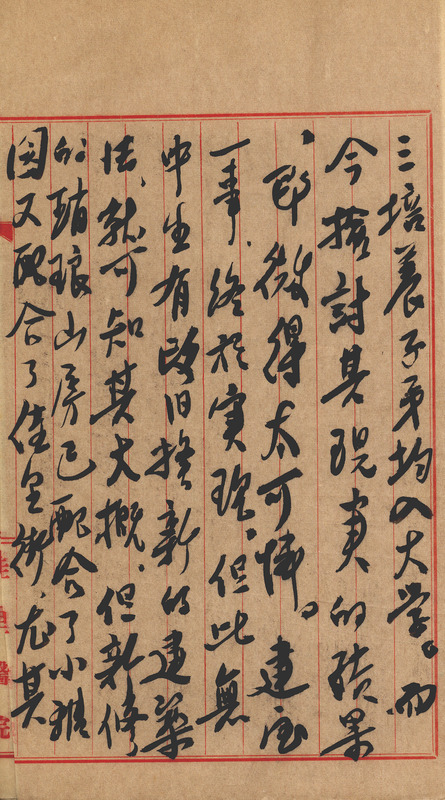 三培養子弟均入大学。而
今檢討其現実的績果
、卽微得太可憐。建宅
一事、終於実現。但此無
中生有改旧換新的建築
法、就可知其大概。但新修
的瑯琅山房已配合了小雅
園又配合了佳皇街、尤其